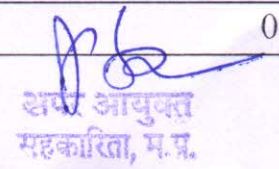 0
अपर आयुक्त
सहकारिता, म.प्र.